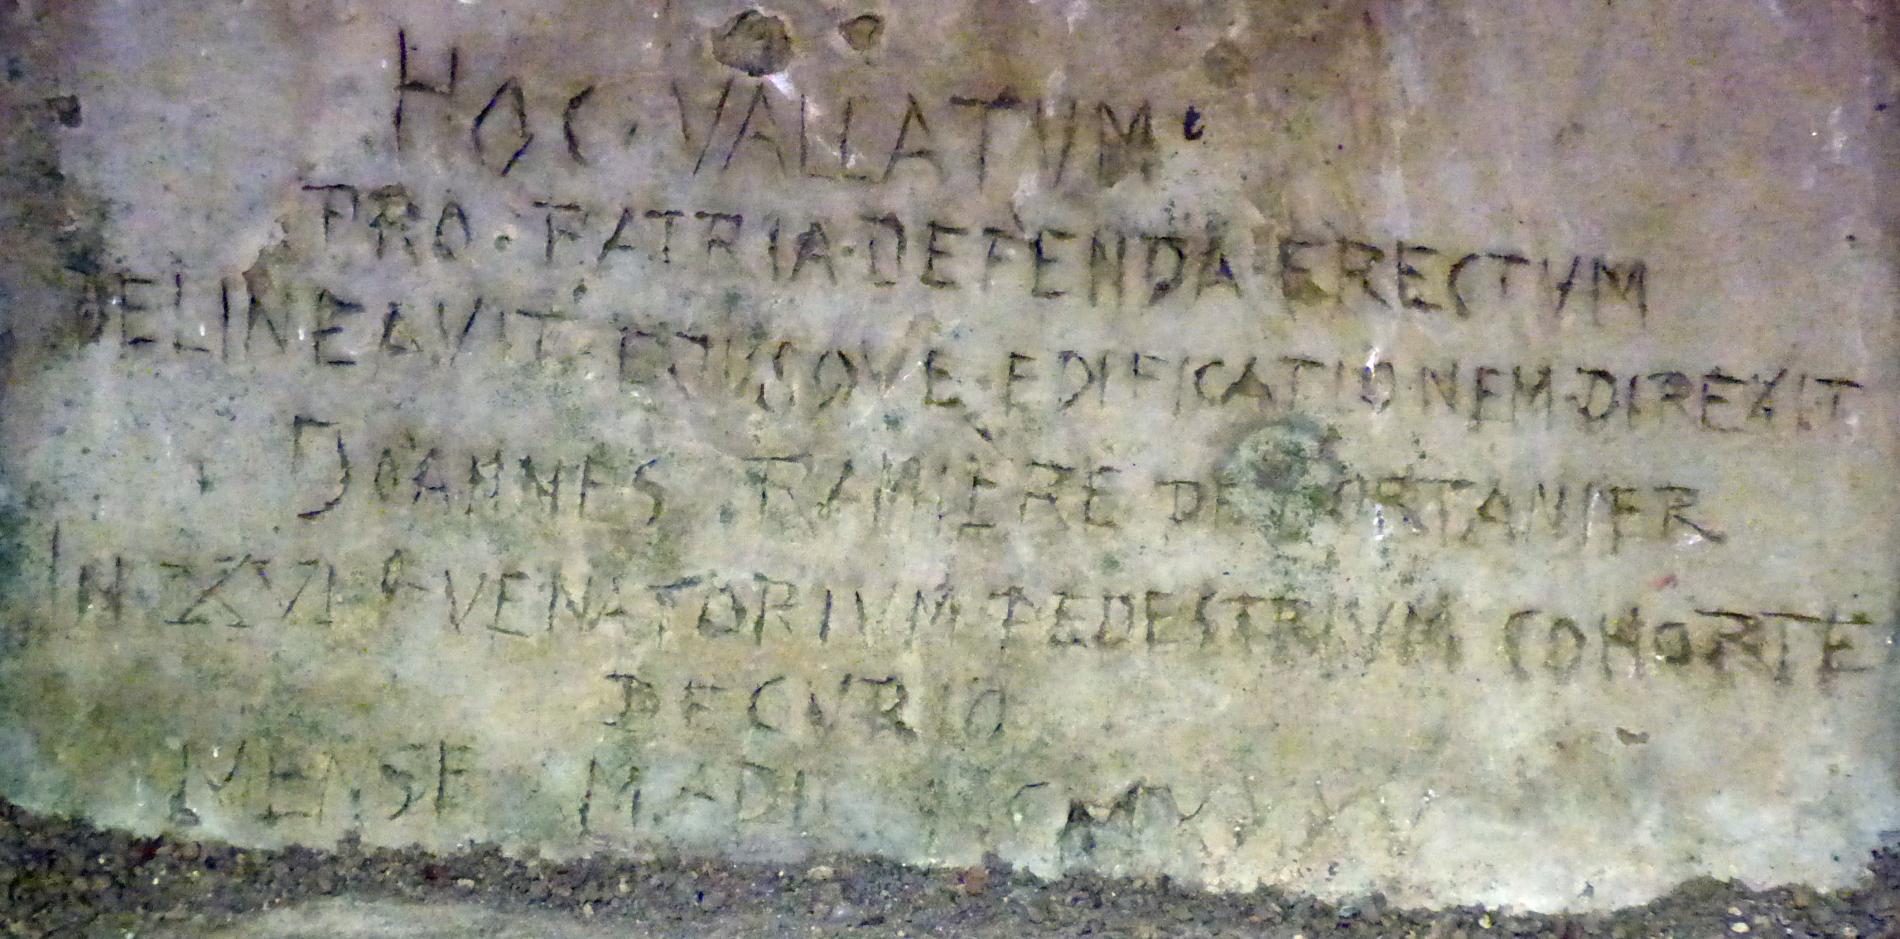 HOC · VALLATUM ·
PRO · PATRIA · DEFENDA ERECTVM
DELINEAVIT · EJUSQVE · EDIFICATIONEM · DIREXIT
JOANNES RAMIÈRE DE FORTANIER
IN XXVI A VENATORIVM PEDESTRIVM COHORTE
DECVRIO
MENSE MADII